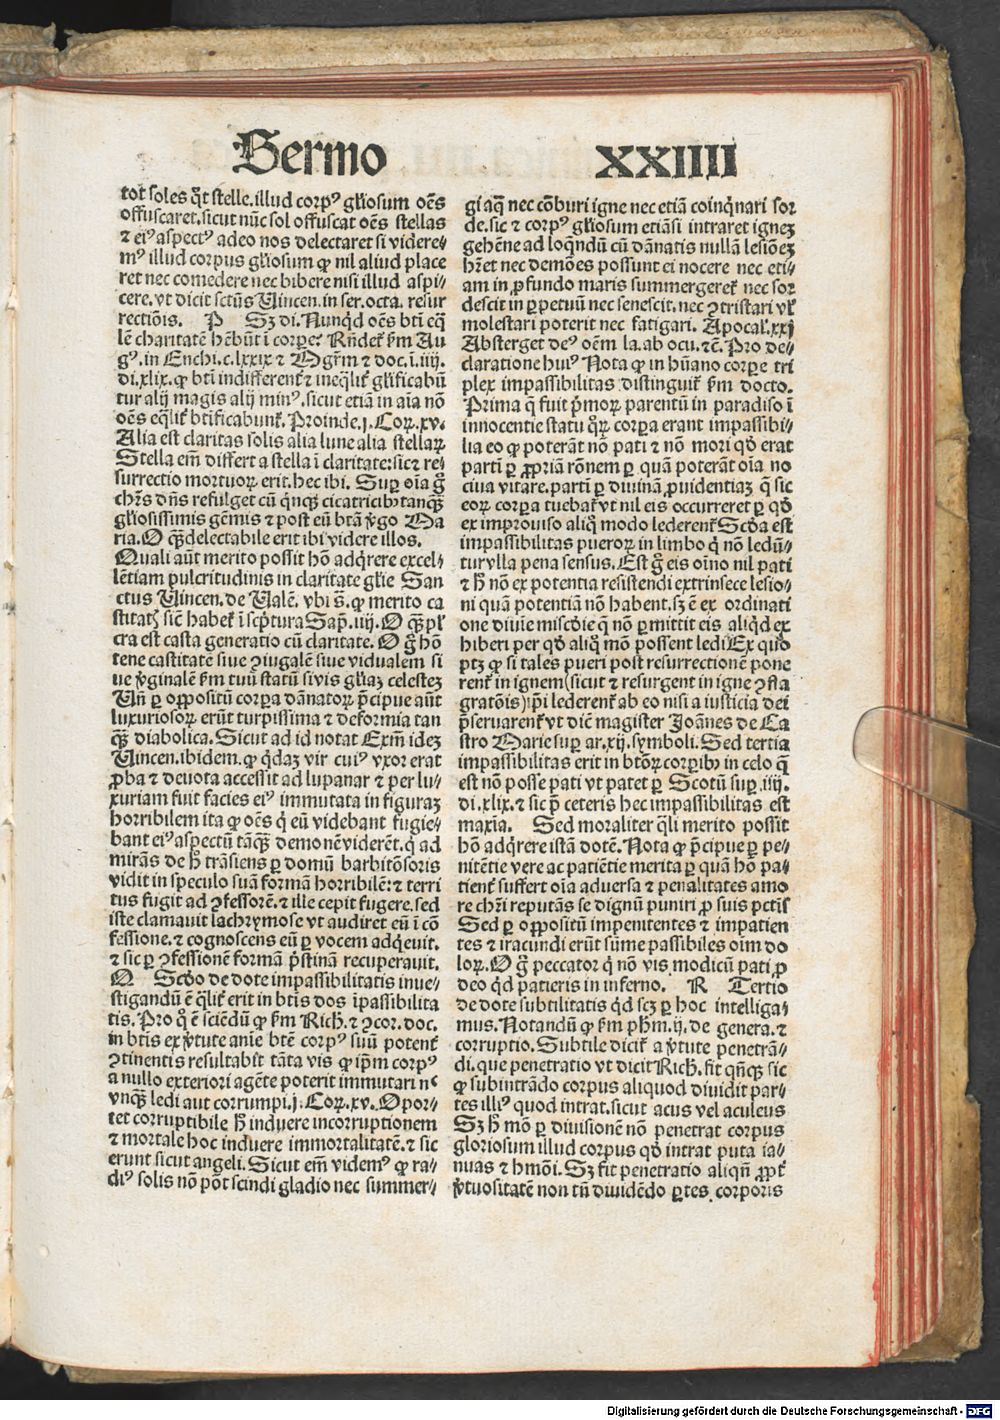 Sermo XXIIII
tot soles q̄t stelle. illud corpꝰ gl̓iosum oēs
offuscaret. sicut nūc sol offuscat oēs stellas
⁊ eiꝰ aspectꝰ adeo nos delectaret si videre⸗
mꝰ illud corpus gl̓iosum ꝙ nil aliud place
ret nec comedere nec bibere nisi illud aspi⸗
cere. vt dicit sctūs Vincen. in ser. octa. resur
rectiōis. P Sꝫ di. Nunqͥd oēs bt̄i eq̄
lē charitatē hēbūt ī corpe? Rn̄det̄ ẜm Au
gꝰ. in Enchi. c. lxxix ⁊ Mgr̄m ⁊ doc. ī. iiij.
di. xlix. ꝙ bt̄i indifferent̄ ⁊ ineq̄lit̄ gl̓ificabū
tur alij magis alij minꝰ. sicut etiā in aīa nō
oēs eq̄lit̄ bt̄ificabunt̄. Proinde. j. Coꝝ. xv.
Alia est claritas solis alia lune alia stellaꝝ
Stella em̄ differt a stella ī claritate: sic ⁊ re⸗
surrectio mortuoꝝ erit. hec ibi. Suꝑ oīa g̃
chr̄s dn̄s refulget cū qͥnqꝫ cicatricibꝫ tanqꝫ̄
gl̓iosissimis gēmis ⁊ post eū bt̄ā v̓go Ma
ria. O qꝫ̄ delectabile erit ibi videre illos.
Quali aūt merito possit hō adqͥrere excel⸗
lētiam pulcritudinis in claritate gl̓ie San
ctus Vincen. de Valē. vbi s̄. ꝙ merito ca
stitatꝭ sic̄ habet̄ ī scpͥtura Sap̄. iiij. O qꝫ̄ pl̓
cra est casta generatio cū claritate. O g̃ hō
tene castitatē siue ꝯiugalē siue vidualem si
ue v̓ginalē ẜm tuū statū si vis gl̓iaꝫ celesteꝫ
Vn̄ ꝑ oppositū corpa dānatoꝝ p̄cipue aūt
luxuriosoꝝ erūt turpissima ⁊ deformia tan
qꝫ̄ diabolica. Sicut ad id notat Exm̄ ideꝫ
Vincen. ibidem. ꝙ qͥdaꝫ vir cuiꝰ vxor erat
ꝓba ⁊ deuota accessit ad lupanar ⁊ per lu⸗
xuriam fuit facies eiꝰ immutata in figuraꝫ
horribilem ita ꝙ oēs qͥ eū videbant fugie⸗
bant eiꝰ aspectū tanqꝫ̄ demonē viderēt. qͥ ad
mirās de h̄ trāsiens ꝑ domū barbitōsoris
vidit in speculo suā formā horribilē: ⁊ terri
tus fugit ad ꝯfessorē. ⁊ ille cepit fugere. sed
iste clamauit lachrymose vt audiret eū ī cō
fessione. ⁊ cognoscens eū ꝑ vocem adqͥeuit.
⁊ sic ꝑ ꝯfessionē formā pͥstinā recuperauit.
Q Scdo de dote impassibilitatis inue⸗
stigandū ē q̄lit̄ erit in bt̄is dos īpassibilita
tis. Pro qͦ ē sciēdū ꝙ ẜm Rich. ⁊ ꝯcor. doc.
in bt̄is ex v̓tute anīe bt̄e corpꝰ suū potent̄
ꝯtinentis resultabit tāta vis ꝙ ip̄m corpꝰ
a nullo exteriori agēte poterit immutari nͨ
vnqꝫ̄ ledi aut corrumpi. j. Coꝝ. xv. Opor⸗
tet corruptibile h̄ induere incorruptionem
⁊ mortale hoc induere immortalitatē. ⁊ sic
erunt sicut angeli. Sicut em̄ videmꝰ ꝙ ra⸗
diꝰ solis nō pōt scindi gladio nec summer⸗
gi aq̄ nec cōburi igne nec etiā coinqͥnari sor
de. sic ⁊ corpꝰ gl̓iosum etiāsi intraret igneꝫ
gehēne ad loqͥndū cū dānatis nullā lesiōeꝫ
hr̄et nec demōes possunt ei nocere nec eti⸗
am in ꝓfundo maris summergeret̄ nec sor
descit in ꝑpetuū nec senescit. nec ꝯtristari vl̓
molestari poterit nec fatigari. Apocal̓. xxj
Absterget deꝰ oēm la. ab ocu. ⁊c̄. Pro de⸗
claratione huiꝰ Nota ꝙ in hūano corpe tri
plex impassibilitas distinguit̄ ẜm docto.
Prima q̄ fuit pͥmoꝝ parentū in paradiso ī
innocentie statu qͦꝝ corpa erant impassibi⸗
lia eo ꝙ poterāt nō pati ⁊ nō mori qd̓ erat
partī ꝑ ꝓpriā rōnem ꝑ quā poterāt oīa no
ciua vitare. partī ꝑ diuinā ꝓuidentiaꝫ q̄ sic
eoꝝ corpa tuebat̄ vt nil eis occurreret ꝑ qd̓
ex improuiso aliqͦ modo lederent̄ Scd̓a est
impassibilitas pueroꝝ in limbo qͥ nō ledū⸗
tur vlla pena sensus. Est g̃ eis oīno nil pati
⁊ h̄ nō ex potentia resistendi extrinsece lesio⸗
ni quā potentiā nō habent. sꝫ ē ex ordinati
one diuie mīscd̓ie q̄ nō ꝑmittit eis aliqͥd ex
hiberi per qd̓ aliqͦ mō possent ledi Ex quo
ptꝫ ꝙ si tales pueri post resurrectionē pone
rent̄ in ignem (sicut ⁊ resurgent in igne ꝯfla
gratōis) ip̄i lederent̄ ab eo nisi a iusticia dei
p̄seruarent̄ vt dic̄ magister Joānes de Ca
stro Marie suꝑ ar. xij. symboli. Sed tertia
impassibilitas erit in bt̄oꝝ corpibꝫ in celo q̄
est nō posse pati vt patet ꝑ Scotū suꝑ. iiij.
di. xlix. ⁊ sic p̄ ceteris hec impassibilitas est
maxīa. Sed moraliter q̄li merito possit
hō adqͥrere istā dotē. Nota ꝙ p̄cipue ꝑ pe⸗
nitētie vere ac patiētie merita ꝑ quā hō pa⸗
tient̄ suffert oīa aduersa ⁊ penalitates amo
re chr̄i reputās se dignū puniri ꝓ suis pctīs
Sed ꝑ oppositū impenitentes ⁊ impatien
tes ⁊ iracundi erūt sūme passibiles oīm do
loꝝ. O g̃ peccator qͥ nō vis modicū pati ꝓ
deo qͥd patieris in inferno. R Tertio
de dote subtilitatis qͥd scꝫ ꝑ hoc intelliga⸗
mus. Notandū ꝙ ẜm ph̄m. ij. de genera. ⁊
corruptio. Subtile dicit̄ a v̓tute penetrā⸗
di. que penetratio vt dicit Rich. fit qn̄qꝫ sic
ꝙ subintrādo corpus aliquod diuidit par⸗
tes illiꝰ quod intrat. sicut acus vel aculeus
Sꝫ h̄ mō ꝑ diuisionē nō penetrat corpus
gloriosum illud corpus qd̓ intrat puta ia⸗
nuas ⁊ hmōi. Sꝫ fit penetratio aliqn̄ ꝓpt̄
v̓tuositatē non tn̄ diuidēdo ꝑtes corporis
Digitalisierung gefördert durch die Deutsche Forschungsgemeinschaft - DFG